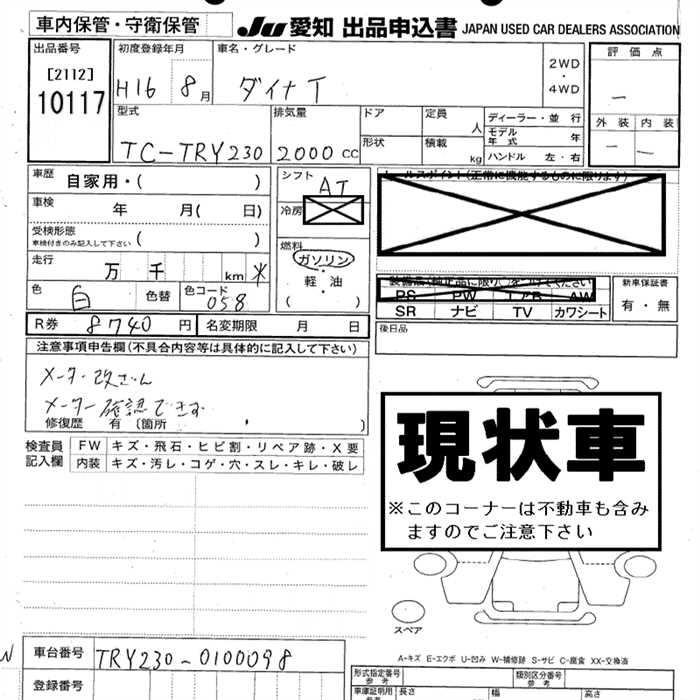 車内保管・守衛保管
JU 愛知 出品申込書 JAPAN USED CAR DEALERS ASSOCIATION
出品番号
[2112]
10117
初度登録年月
H16 8月
車名・グレード
ダイナ T
2WD
・
4WD
評価点
—
外装 内装
— —
型式
TC-TRY230
排気量
2000 CC
ドア
形状
定員
人
積載
kg
ディーラー・並行
モデル年式 年
ハンドル 左・右
車歴
自家用・( )
車検 年 月( 日)
受検形態
車検付きのみ記入して下さい ( )
走行
万 千 km *
色
白
色替
色コード
058
シフト
AT
冷房
燃料
ガソリン
・
軽・油
( )
セールスポイント(正常に機能するものに限ります)
PS PW エアB AW
SR ナビ TV カワシート
新車保証書
有・無
R券 8740 円 名変期限 月 日
後日品
注意事項申告欄(不具合内容等は具体的に記入して下さい)
メーター改ざん
メーター確認できず
修復歴 有 (箇所 )
検査員
記入欄
FW キズ・飛石・ヒビ割・リペア跡・X要
内装 キズ・汚レ・コゲ・穴・スレ・キレ・破レ
現状車
※このコーナーは不動車も含み
ますのでご注意下さい
スペア
A-キズ E-エクボ U-凹み W-補修跡 S-サビ C-腐食 XX-交換済
車台番号 TRY230-0100098
登録番号
形式指定番号
参考
類別区分番号
参考
車庫証明用
長さ 幅 高さ